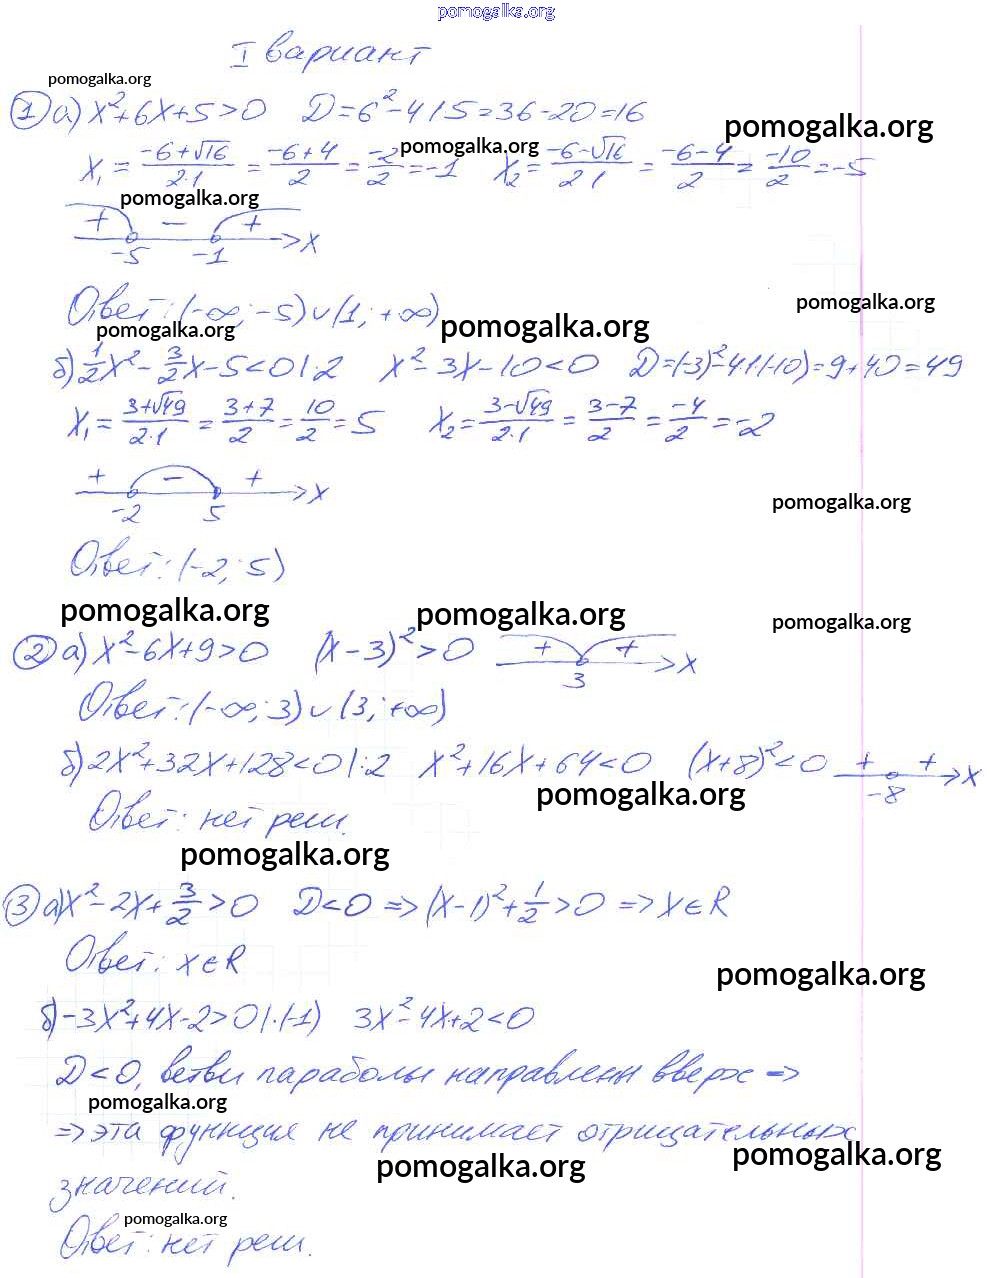 pomogalka.org
I вариант
pomogalka.org
① а) x²+6x+5>0 D=6²-4·1·5=36-20=16
pomogalka.org
x₁ = (-6+√16)/(2·1) = (-6+4)/2 = -2/2 = -1 x₂ = (-6-√16)/(2·1) = (-6-4)/2 = -10/2 = -5
pomogalka.org
pomogalka.org
+ − +
-5 -1 x
Ответ: (-∞; -5)∪(1; +∞)
pomogalka.org
pomogalka.org pomogalka.org
б) 1/2x² - 3/2x - 5<0 |·2 x²-3x-10<0 D=(-3)²-4·1·(-10)=9+40=49
x₁ = (3+√49)/(2·1) = (3+7)/2 = 10/2 = 5 x₂ = (3-√49)/(2·1) = (3-7)/2 = -4/2 = -2
+ − +
-2 5 x
pomogalka.org
Ответ: (-2; 5)
pomogalka.org pomogalka.org pomogalka.org
② а) x²-6x+9>0 (x-3)²>0 + + 3 x
Ответ: (-∞; 3)∪(3; +∞)
б) 2x²+32x+128<0 |:2 x²+16x+64<0 (x+8)²<0 + + -8 x
pomogalka.org
Ответ: нет реш.
pomogalka.org
③ а) x²-2x+3/2>0 D<0 => (x-1)²+1/2>0 => x∈R
Ответ: x∈R
pomogalka.org
б) -3x²+4x-2>0 |·(-1) 3x²-4x+2<0
D<0, ветви параболы направлены вверх =>
pomogalka.org
=> эта функция не принимает отрицательных
pomogalka.org pomogalka.org
значений.
pomogalka.org
Ответ: нет реш.